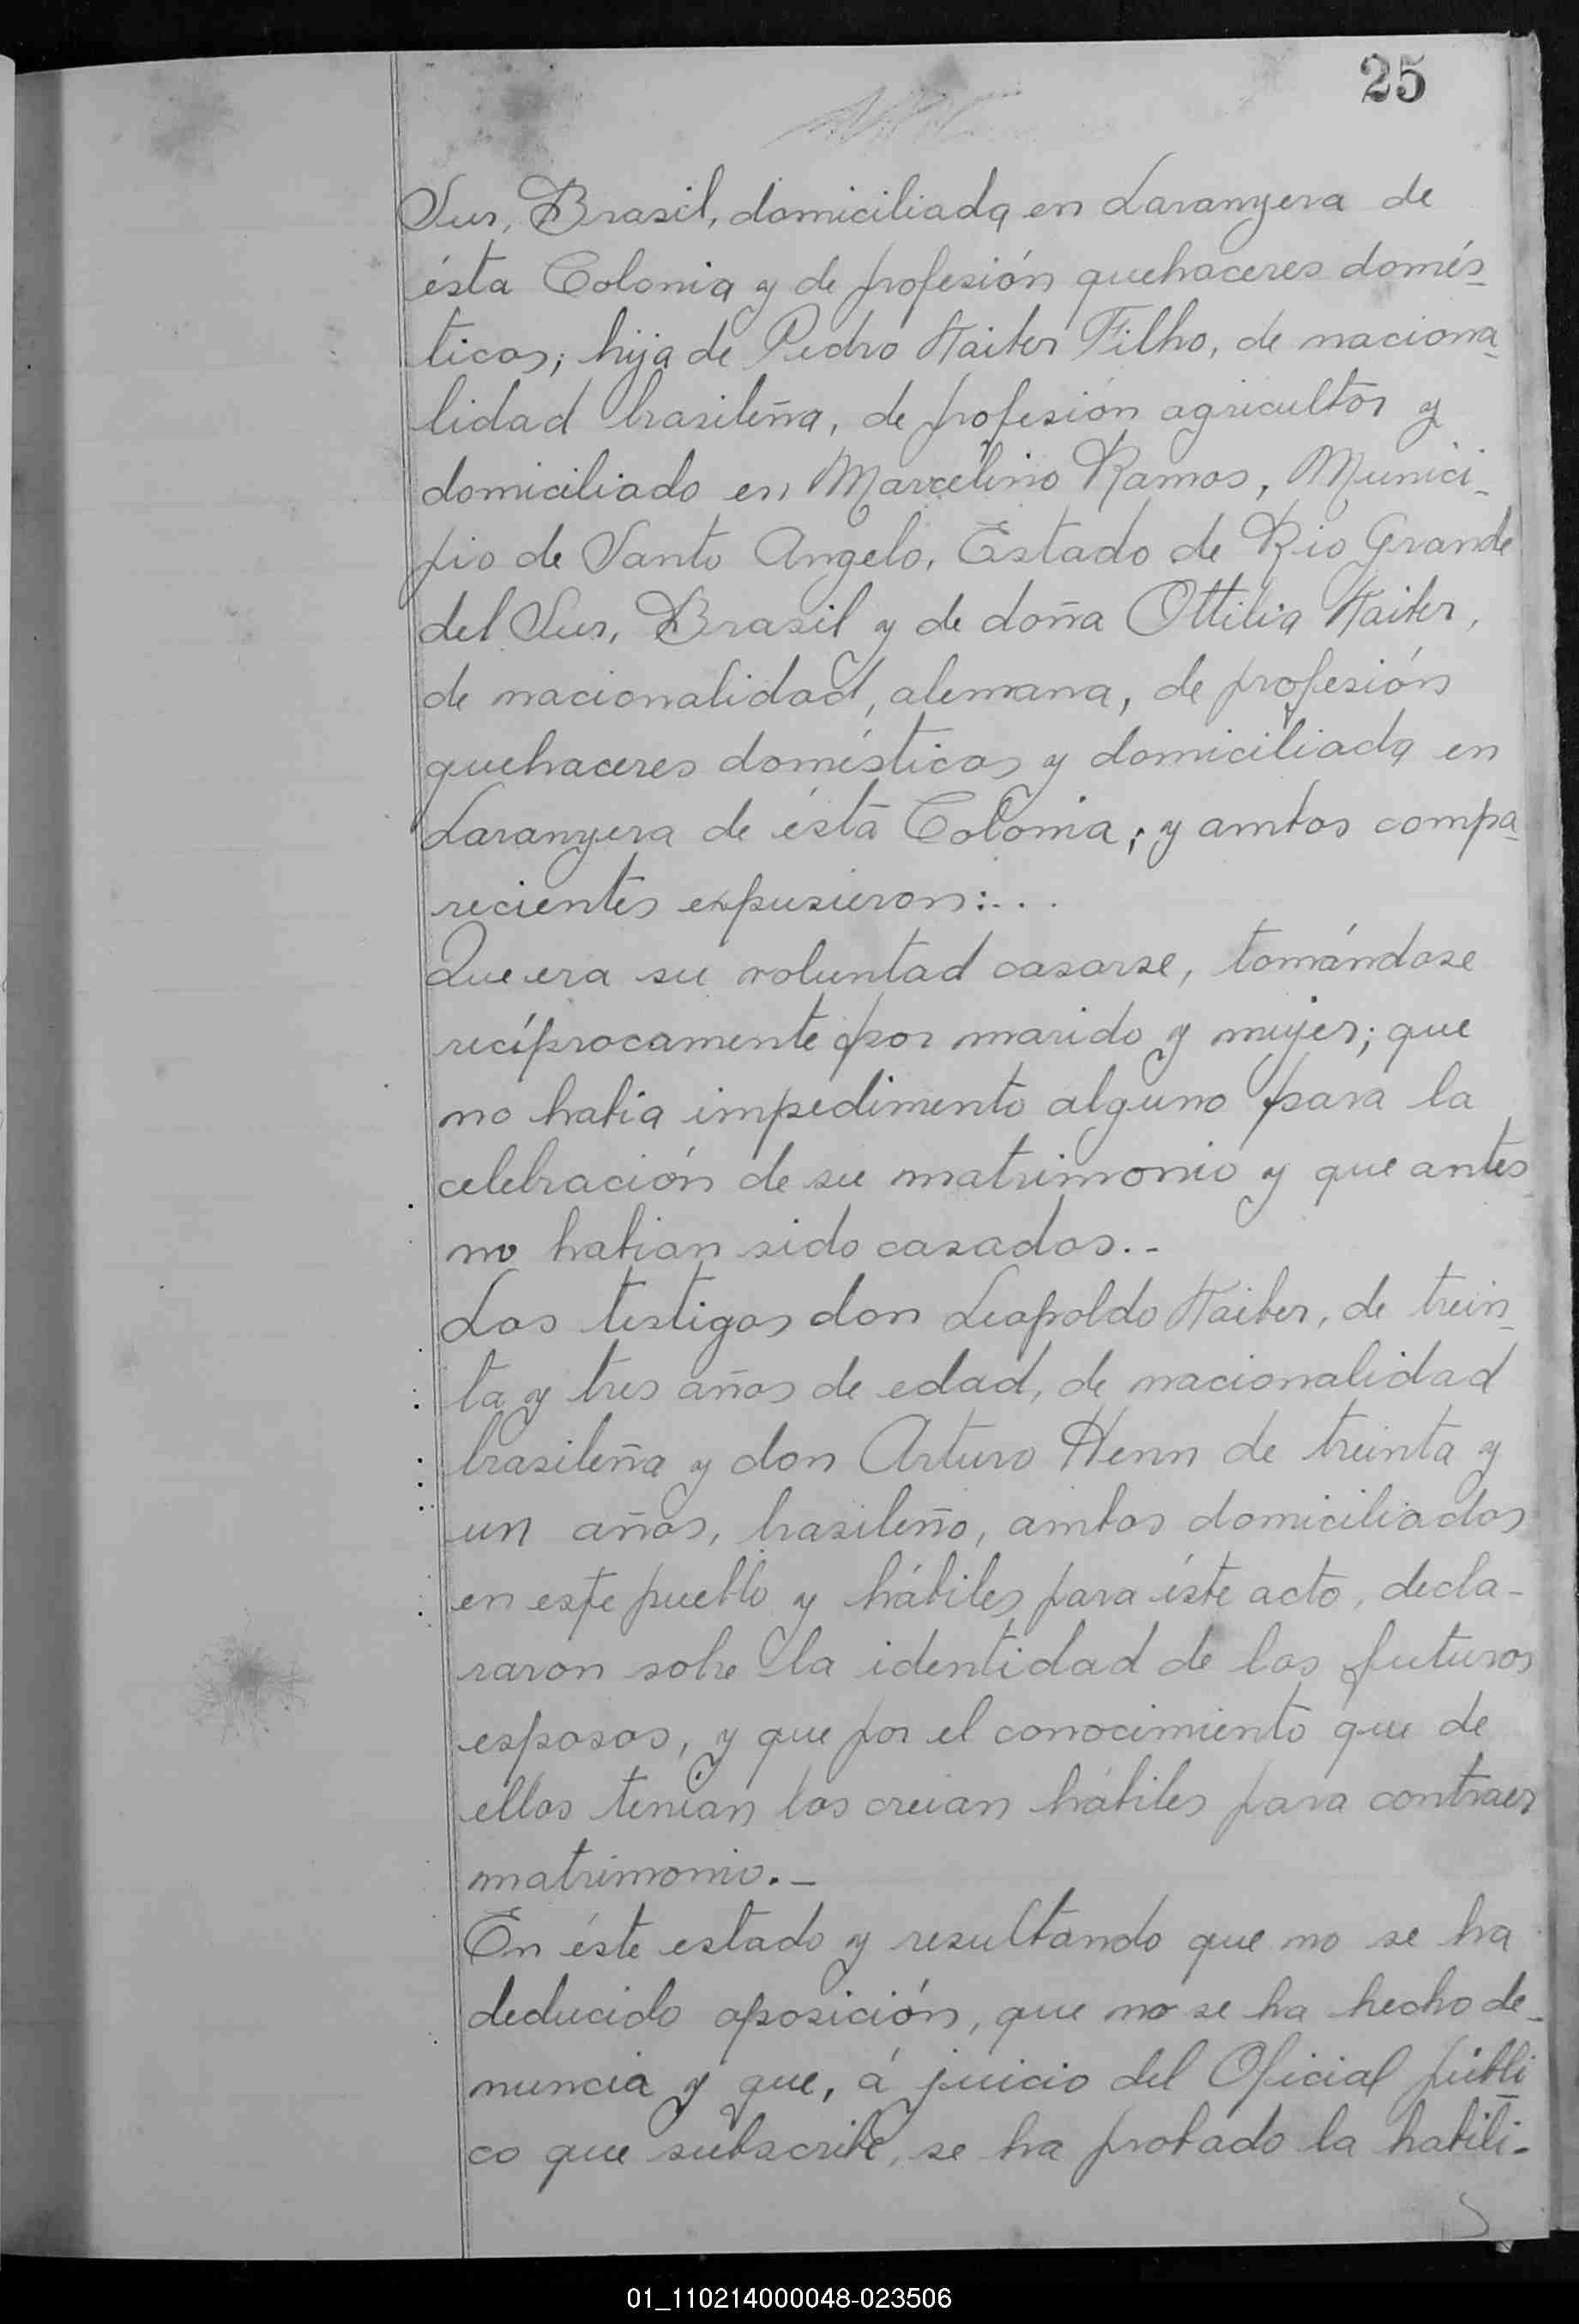 25
Sur, Brasil, domiciliada en Laranyera de
ésta Colonia y de profesión quehaceres domés-
ticos; hija de Pedro Haiter Filho, de naciona-
lidad brasileña, de profesión agricultor y
domiciliado en Marcelino Ramos, Munici-
pio de Santo Angelo, Estado de Rio Grande
del Sur, Brasil y de doña Ottilia Haiter,
de nacionalidad, alemana, de profesión
quehaceres domésticos y domiciliada en
Laranyera de ésta Colonia; y ambos compa-
recientes expusieron:...
Que era su voluntad casarse, tomándose
recíprocamente por marido y mujer; que
no habia impedimento alguno para la
celebración de su matrimonio y que antes
no habian sido casados.-
Los testigos don Leopoldo Haiter, de trein-
ta y tres años de edad, de nacionalidad
brasileña y don Arturo Henn de treinta y
un años, brasileño, ambos domiciliados
en este pueblo y hábiles para éste acto, decla-
raron sobre la identidad de los futuros
esposos, y que por el conocimiento que de
ellos tenian los creian hábiles para contraer
matrimonio.-
En éste estado y resultando que no se ha
deducido oposición, que no se ha hecho de-
nuncia y que, á juicio del Oficial públi-
co que subscribe, se ha probado la habili-
01_110214000048-023506